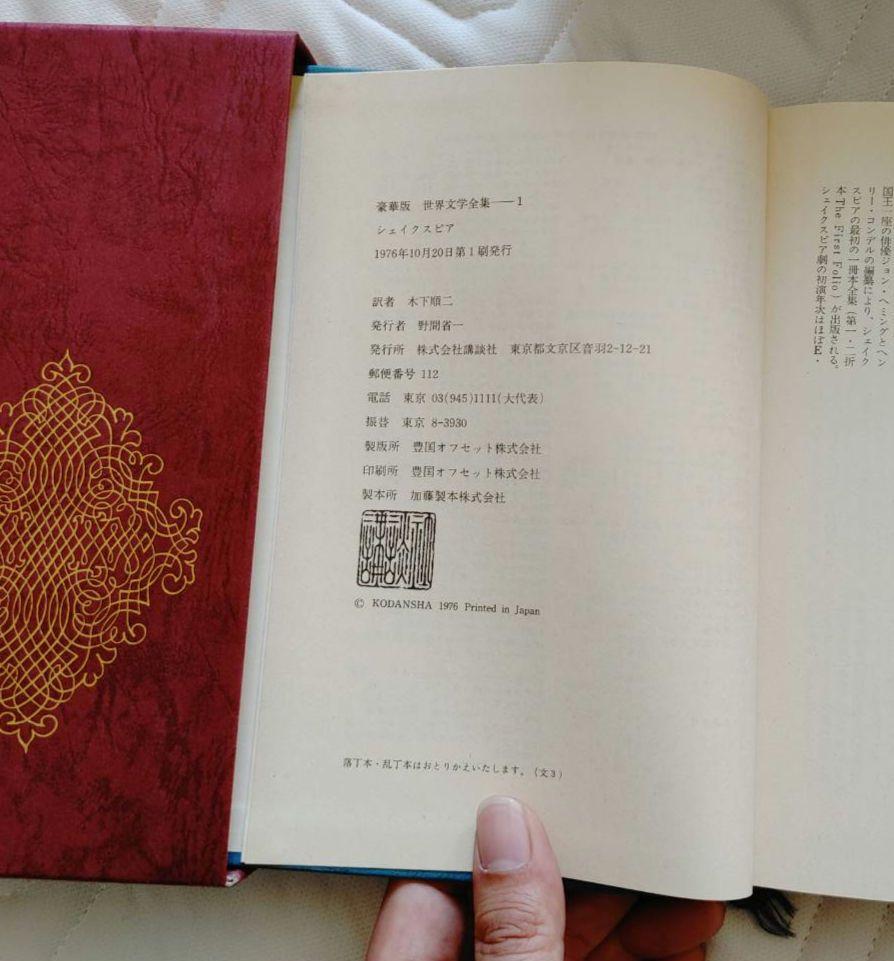 豪華版 世界文学全集——1
シェイクスピア
1976年10月20日第1刷発行
訳者 木下順二
発行者 野間省一
発行所 株式会社講談社 東京都文京区音羽2-12-21
郵便番号 112
電話 東京 03(945)1111(大代表)
振替 東京 8-3930
製版所 豊国オフセット株式会社
印刷所 豊国オフセット株式会社
製本所 加藤製本株式会社
© KODANSHA 1976 Printed in Japan
落丁本・乱丁本はおとりかえいたします。(文3)
国王一座の俳優ジョン・ヘミングとヘン
リー・コンデルの編纂により、シェイク
スピアの最初の一冊本全集(第一・二折
本 The First Folio)が出版される。
シェイクスピア劇の初演年次はほぼE・